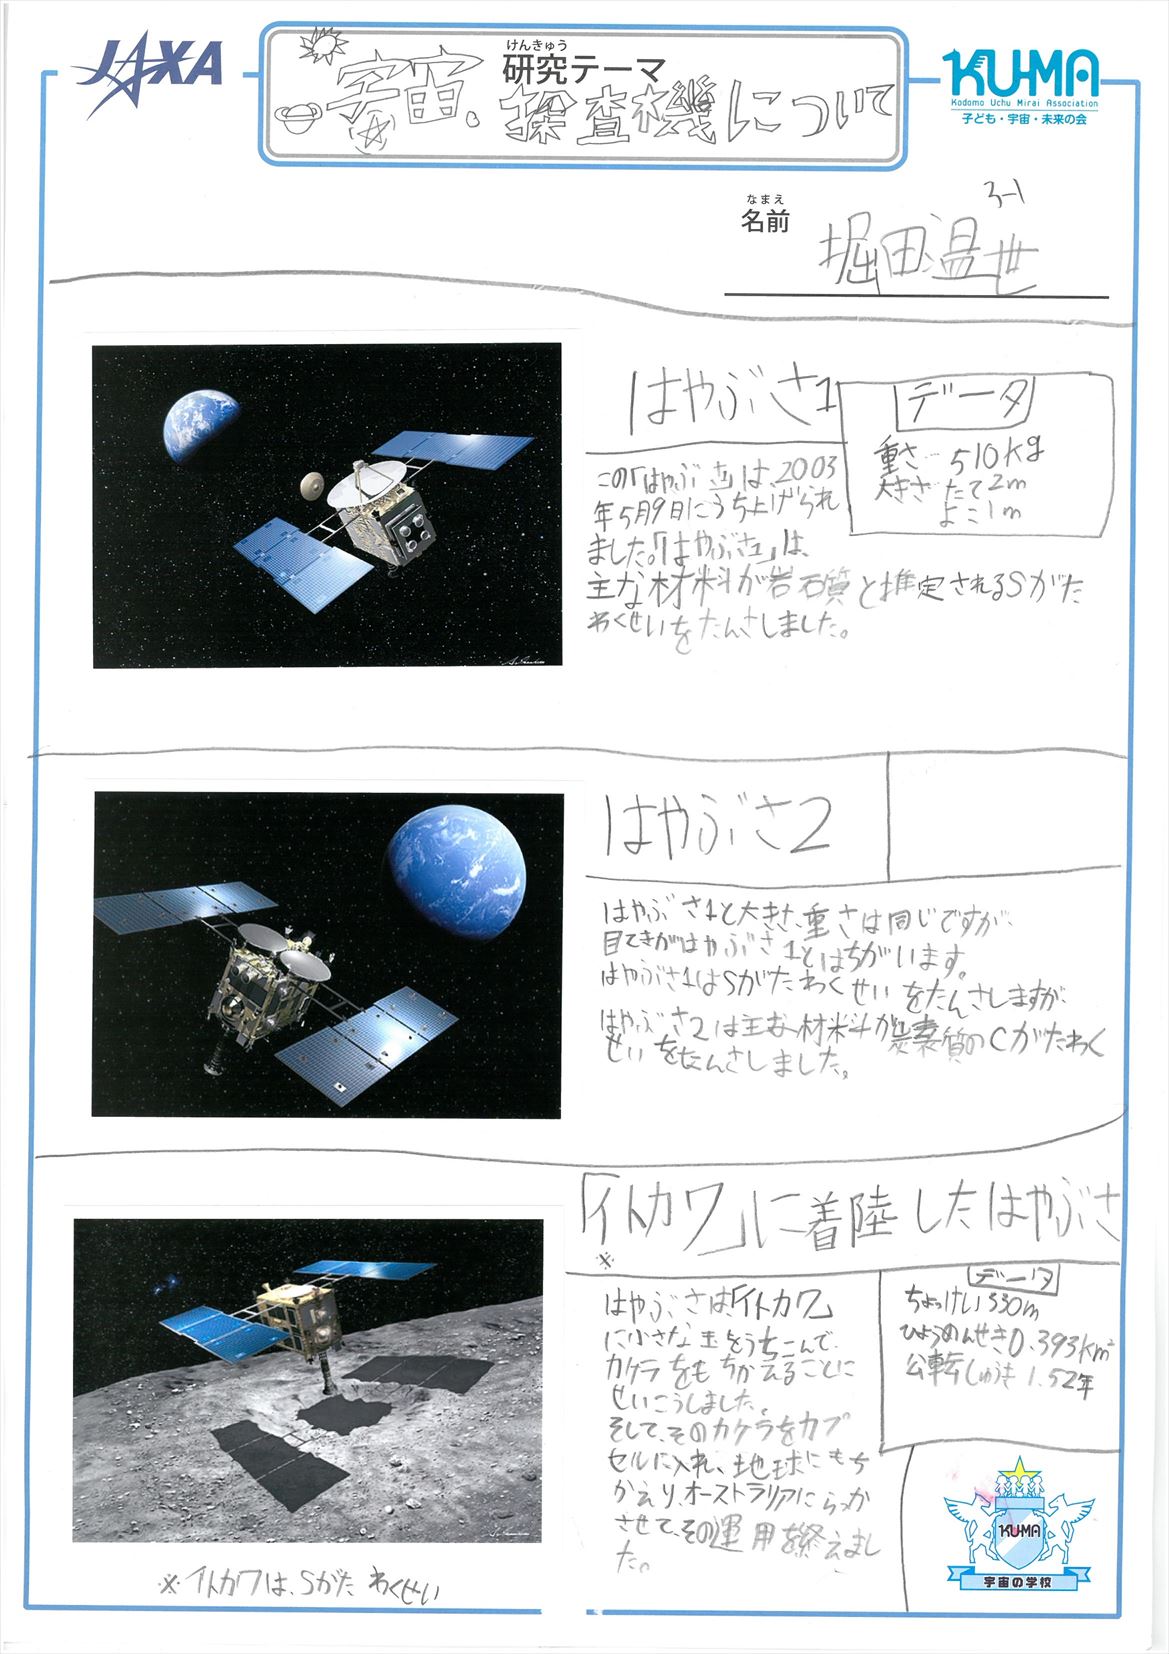 JAXA
けんきゅう
研究テーマ
宇宙、探査機について
KU-MA
Kodomo Uchu Mirai Association
子ども・宇宙・未来の会
3-1
なまえ
名前
堀田温世
はやぶさ1
データ
重さ…510kg
大きさ…たて2m
よこ1m
この「はやぶさ1」は、2003
年5月9日にうち上げられ
ました。「はやぶさ1」は、
主な材料が岩石質と推定されるSがた
わくせいをたんさしました。
はやぶさ2
はやぶさ1と大きさ、重さは同じですが、
目てきがはやぶさ1とはちがいます。
はやぶさ1はSがたわくせいをたんさしますが、
はやぶさ2は主な材料が炭素質のCがたわく
せいをたんさしました。
「イトカワ」に着陸したはやぶさ
※
はやぶさは「イトカワ」
に小さな玉をうちこんで、
カケラをもちかえることに
せいこうしました。
そして、そのカケラをカプ
セルに入れ、地球にもち
かえり、オーストラリアにらっか
させて、その運用を終えまし
た。
データ
ちょっけい530m
ひょうめんせき0.393km²
公転しゅうき1.52年
※イトカワは、Sがたわくせい
KU-MA
宇宙の学校